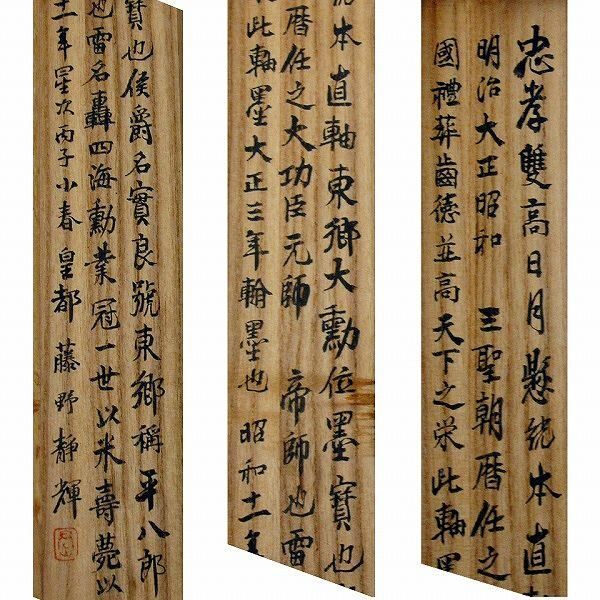 忠孝雙高日月懸絖本直
明治大正昭和 三聖朝暦任之
國禮葬齒徳並高天下之栄此軸墨
絖本直軸東郷大勲位墨寶也
暦任之大功臣元帥 帝師也雷
此軸墨大正三年翰墨也 昭和十一年
寶也侯爵名實良號東郷稱平八郎
也雷名轟四海勲業冠一世以米壽薨以
十一年星次丙子小春 皇都 藤野靜輝